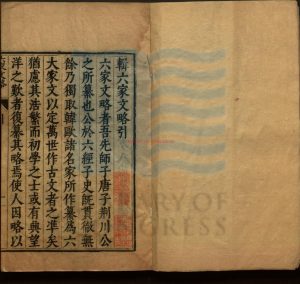 輯六家文略引
六家文略者吾先師子唐子荊川公
之所纂也公於六經子史旣貫徹無
餘乃獨取韓歐諸名家所作纂爲六
大家文以定萬世作古文者之準矣
猶慮其浩繁而初學之士或有興望
洋之歎者復纂其略焉使人因略以
LIBRARY OF
CONGRESS